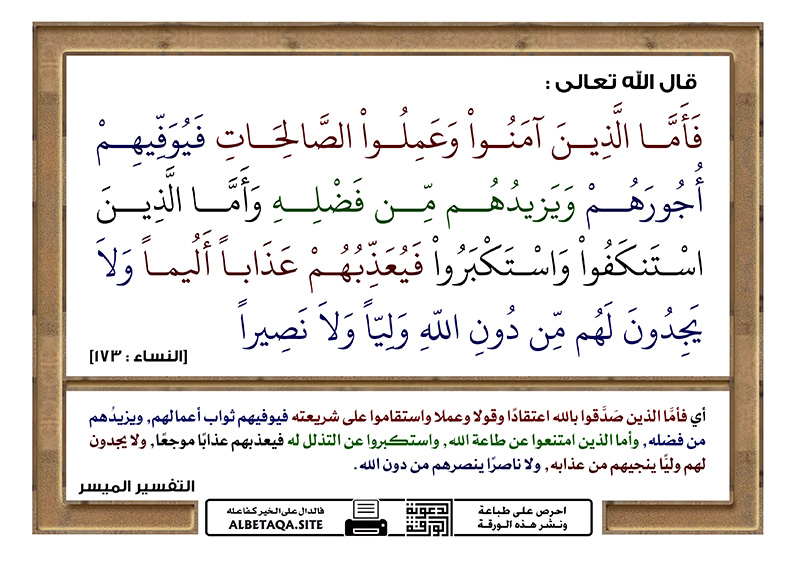 قال الله تعالى :
فَأَمَّا الَّذِينَ آمَنُواْ وَعَمِلُواْ الصَّالِحَاتِ فَيُوَفِّيهِمْ
أُجُورَهُمْ وَيَزيدُهُم مِّن فَضْلِهِ وَأَمَّا الَّذِينَ
اسْتَنكَفُواْ وَاسْتَكْبَرُواْ فَيُعَذِّبُهُمْ عَذَاباً أَلُيماً وَلاَ
يَجِدُونَ لَهُم مِّن دُونِ اللّهِ وَلِيّاً وَلاَ نَصِيراً
[النساء : ١٧٣]
أي فأمَّا الذين صَدَّقوا بالله اعتقادًا وقولا وعملا واستقاموا على شريعته فيوفيهم ثواب أعمالهم, ويزيدُهم
من فضله, وأما الذين امتنعوا عن طاعة الله, واستكبروا عن التذلل له فيعذبهم عذابًا موجعًا, ولا يجدون
لهم وليًّا ينجيهم من عذابه, ولا ناصرًا ينصرهم من دون الله.
التفسير الميسر
احرص على طباعة
ونشر هذه الورقة
الورقة الدعوية
فالدال على الخير كفاعله
ALBETAQA.SITE